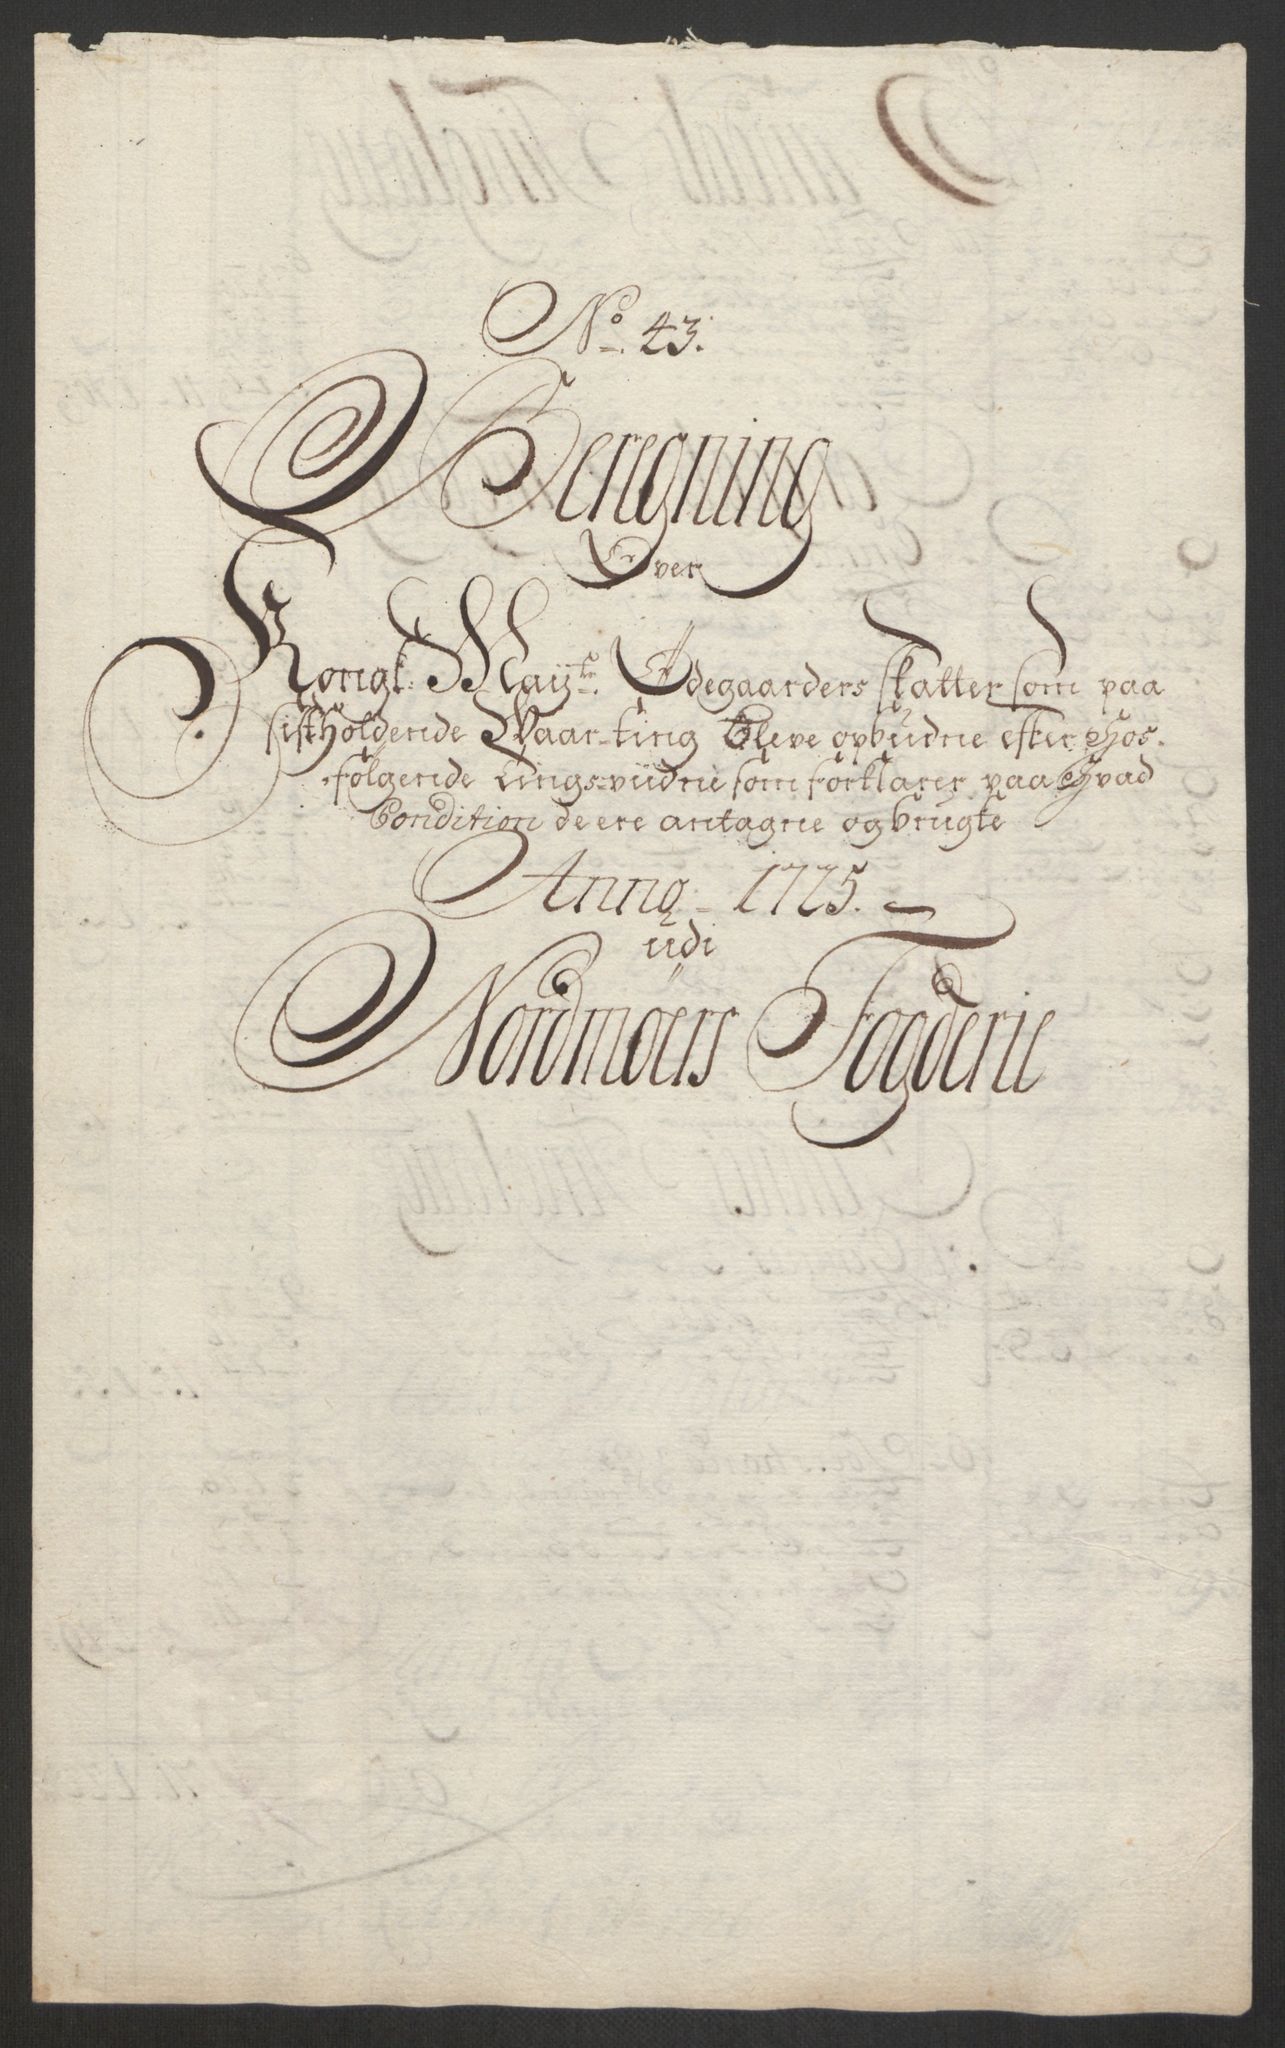 No. 43.
Beregning
Over
Kongl. Mayts. Ødegaarders skatter som paa
sistholdende Waar-ting bleve opbudne efter Hos-
følgende tings-vidne som forklarer paa Hvad
Condition de ere antagne og brugte
Anno 1725.
udi
Nordmøers Fogderie